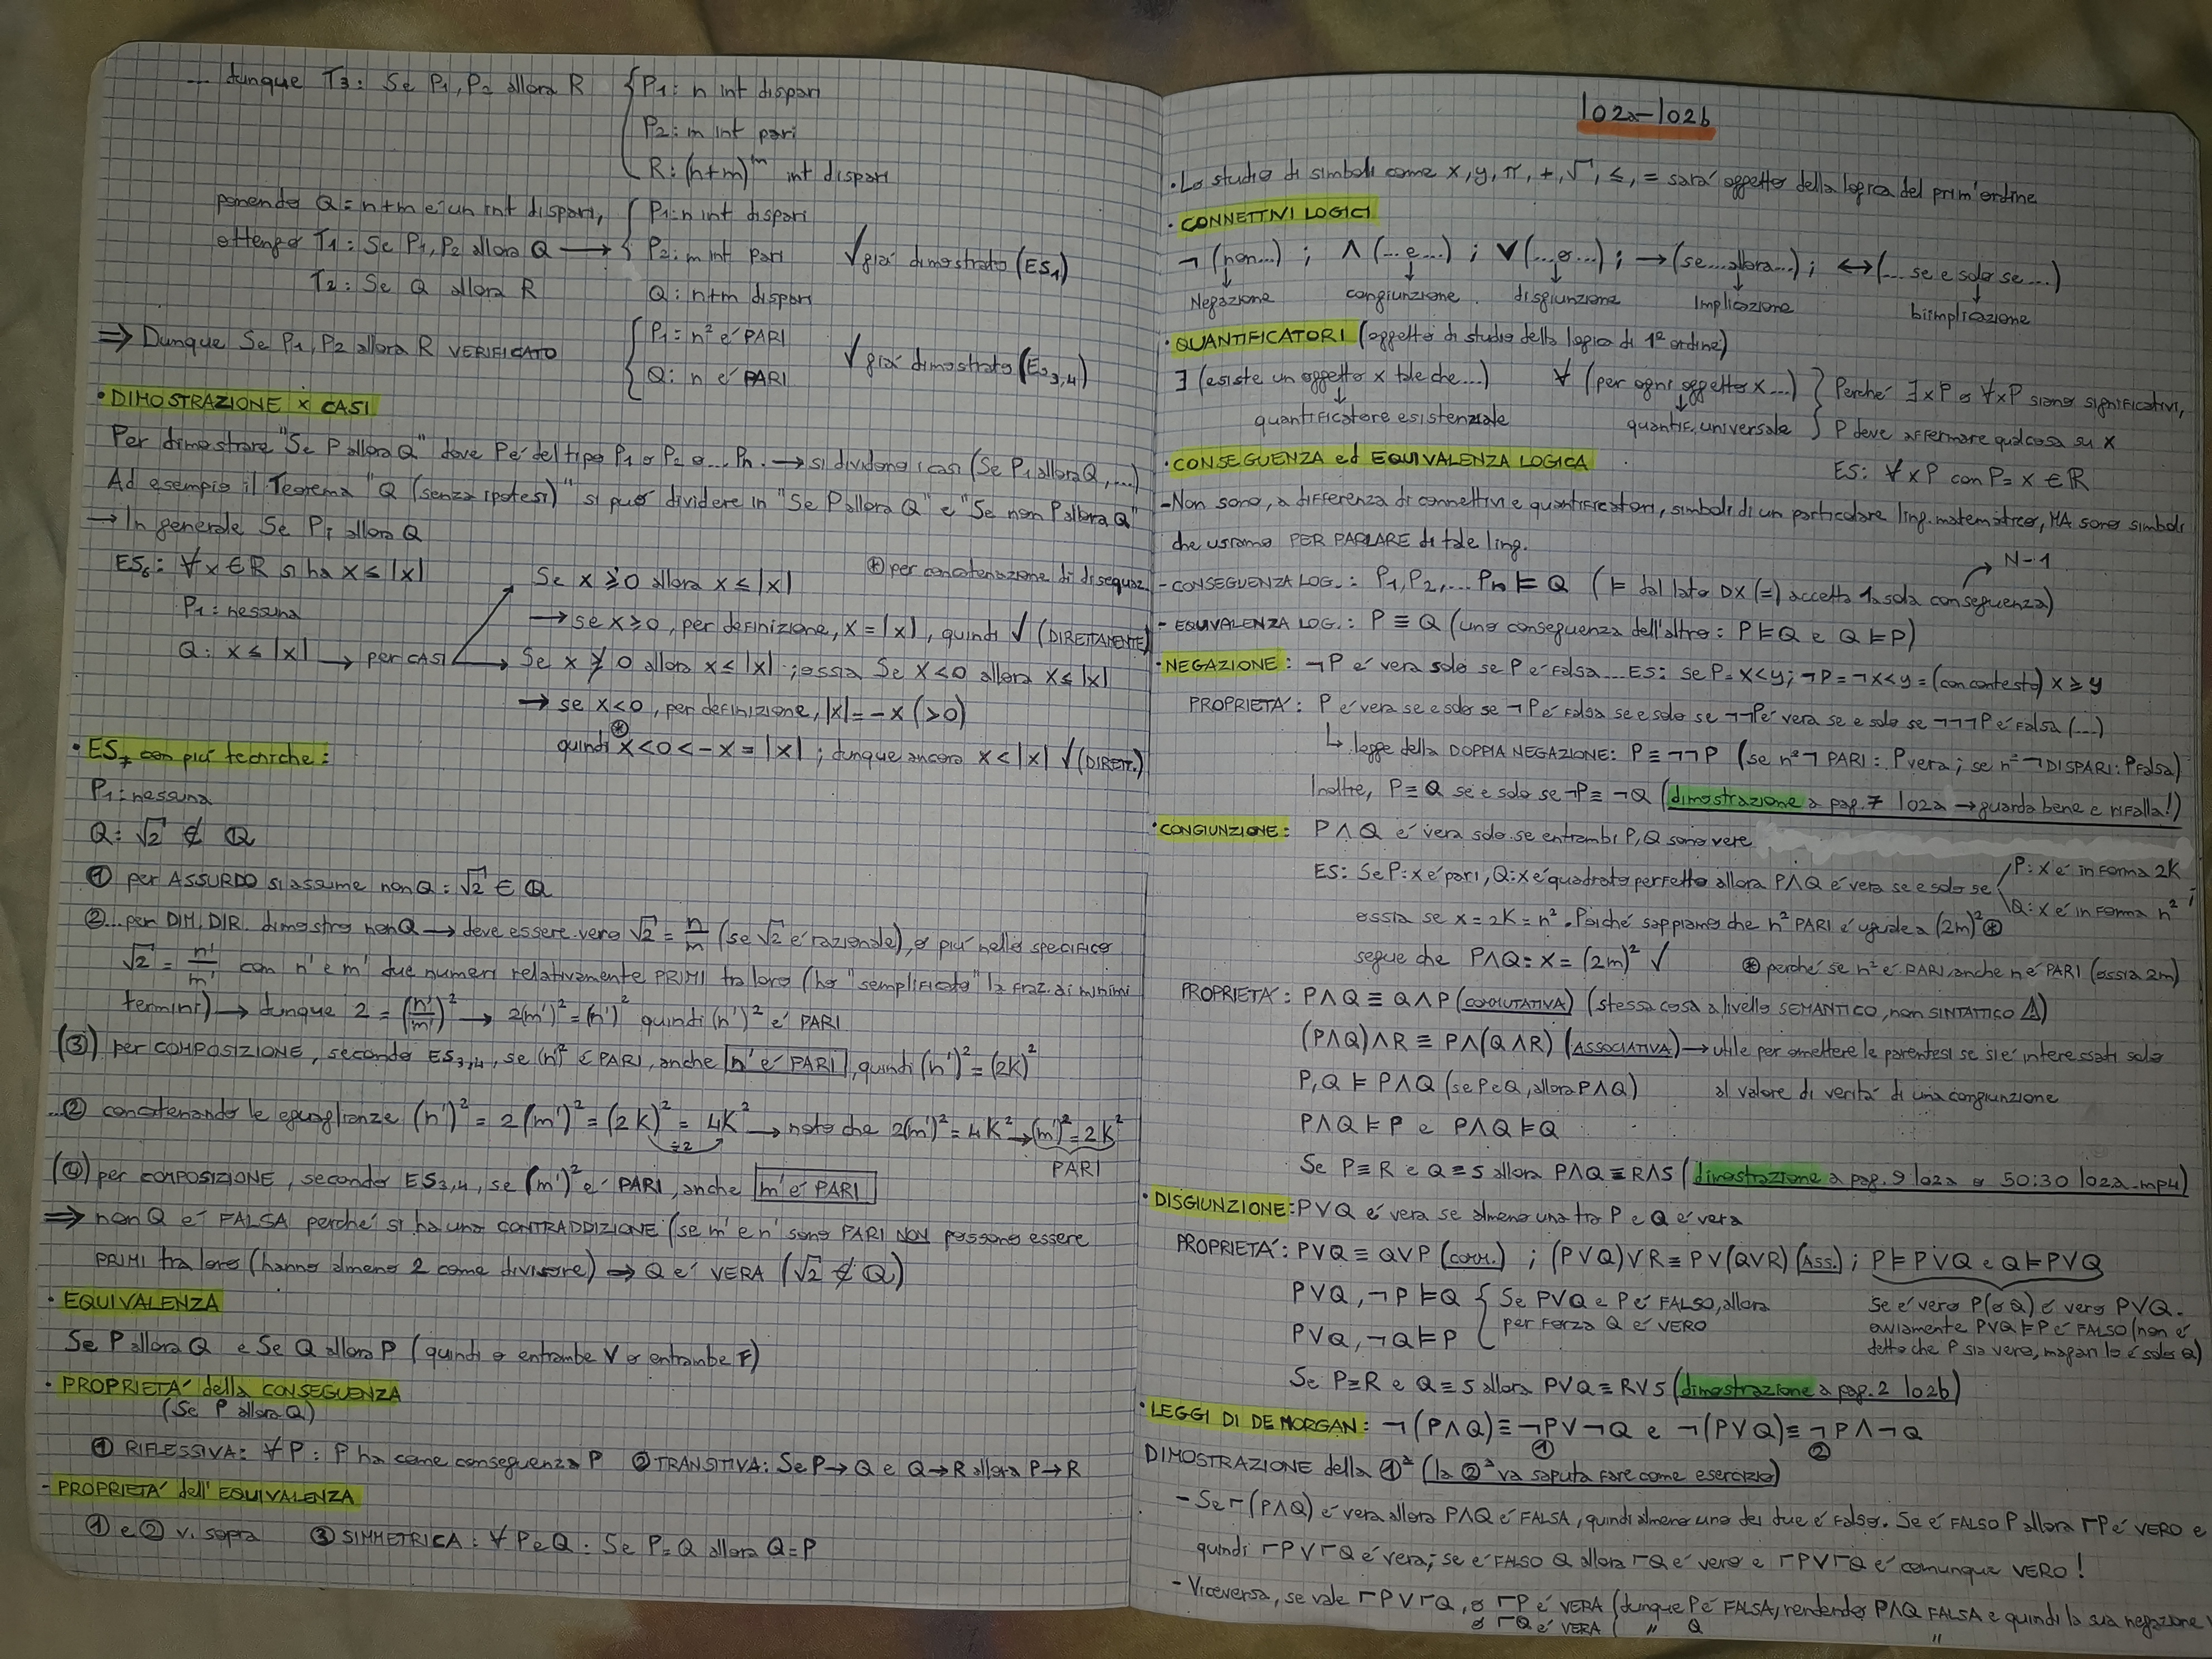 ... dunque T3: Se P1, P2 allora R { P1: n int dispari
P2: m int pari
R: (n+m)^m int dispari
ponendo Q = n+m è un int dispari, { P1: n int dispari
ottengo T1: Se P1, P2 allora Q → P2: m int pari √ già dimostrato (ES1)
T2: Se Q allora R Q: n+m dispari
⇒ Dunque Se P1, P2 allora R VERIFICATO { P1: n² é PARI √ già dimostrato (Es3,4)
Q: n é PARI
• DIMOSTRAZIONE x CASI
Per dimostrare "Se P allora Q" dove P é del tipo P1 o P2 o... Pn. → si dividono i casi (Se P1 allora Q, ...)
Ad esempio il Teorema "Q (senza ipotesi)" si può dividere in "Se P allora Q" e "Se non P allora Q"
→ In generale Se Pi allora Q
ES6: ∀x∈R si ha x ≤ |x|
P1: nessuna
Q: x ≤ |x| → per CASI
Se x ≥ 0 allora x ≤ |x| ⊛ per concatenazione di disequaz.
→ se x ≥ 0, per definizione, x = |x|, quindi √ (DIRETTAMENTE)
Se x ≱ 0 allora x ≤ |x| ; ossia Se x < 0 allora x ≤ |x|
→ se x<0, per definizione, |x| = -x (>0)
quindi ⊛ x < 0 < -x = |x| ; dunque ancora x < |x| √ (DIRETT.)
• ES7 con più tecniche:
P1: nessuna
Q: √2 ∉ Q
① per ASSURDO si assume non Q: √2 ∈ Q
②... per DIM. DIR. dimostro non Q → deve essere vero √2 = n/m (se √2 é razionale), o più nello specifico
√2 = n'/m' con n' e m' due numeri relativamente PRIMI tra loro (ho "semplificato" la fraz. ai minimi
termini) → dunque 2 = (n'/m')² → 2(m')² = (n')² quindi (n')² é PARI
(③) per COMPOSIZIONE, secondo ES3,4, se (n')² é PARI, anche n' é PARI, quindi (n')² = (2K)²
...② concatenando le eguaglianze (n')² = 2(m')² = (2K)² = 4K² → noto che 2(m')² = 4K² → (m')² = 2K²
÷2 PARI
(④) per COMPOSIZIONE, secondo ES3,4, se (m')² é PARI, anche m' é PARI
⇒ non Q é FALSA perché si ha una CONTRADDIZIONE (se m' e n' sono PARI NON possono essere
PRIMI tra loro (hanno almeno 2 come divisore) ⇒ Q é VERA (√2 ∉ Q)
• EQUIVALENZA
Se P allora Q e Se Q allora P (quindi o entrambe V o entrambe F)
• PROPRIETA' della CONSEGUENZA
(Se P allora Q)
① RIFLESSIVA: ∀P: P ha come conseguenza P ② TRANSITIVA: Se P→Q e Q→R allora P→R
- PROPRIETA' dell'EQUIVALENZA
① e ② v. sopra ③ SIMMETRICA: ∀ P e Q: Se P=Q allora Q=P
l02a-l02b
• Lo studio di simboli come x, y, π, +, √, ≤, = sarà oggetto della logica del prim'ordine
• CONNETTIVI LOGICI
¬ (non...) ; ∧ (...e...) ; ∨ (...o...) ; → (se...allora...) ; ↔ (... se e solo se...)
Negazione congiunzione disgiunzione Implicazione biimplicazione
• QUANTIFICATORI (oggetto di studio della logica di 1º ordine)
∃ (esiste un oggetto x tale che...) ∀ (per ogni oggetto x...) } Perché ∃xP o ∀xP siano significativi,
quantificatore esistenziale quantif. universale P deve affermare qualcosa su x
• CONSEGUENZA ed EQUIVALENZA LOGICA ES: ∀xP con P= x∈R
- Non sono, a differenza di connettivi e quantificatori, simboli di un particolare ling. matematico, MA sono simboli
che usiamo PER PARLARE di tale ling.
N-1
- CONSEGUENZA LOG.: P1, P2, ... Pn ⊨ Q (⊨ dal lato DX (=) accetta 1 sola conseguenza)
- EQUIVALENZA LOG.: P ≡ Q (uno conseguenza dell'altro: P⊨Q e Q⊨P)
• NEGAZIONE: ¬P é vera solo se P é Falsa... ES: se P= x<y; ¬P = ¬x<y = (con contesto) x ≥ y
PROPRIETA': P é vera se e solo se ¬P é Falsa se e solo se ¬¬P é vera se e solo se ¬¬¬P é Falsa (...)
↳ legge della DOPPIA NEGAZIONE: P ≡ ¬¬P (se n² ¬ PARI: P vera; se n² ¬ DISPARI: P Falsa)
Inoltre, P≡Q se e solo se ¬P≡¬Q (dimostrazione a pag. 7 l02a → guarda bene e rifalla!)
• CONGIUNZIONE: P∧Q é vera solo se entrambi P, Q sono vere
ES: Se P: x é pari, Q: x é quadrato perfetto allora P∧Q é vera se e solo se P: x é in forma 2K
Q: x é in forma n²
ossia se x = 2K = n². Poiché sappiamo che n² PARI é uguale a (2m)² ⊛
segue che P∧Q: x = (2m)² √ ⊛ perché se n² é PARI, anche n é PARI (ossia 2m)
PROPRIETA': P∧Q ≡ Q∧P (COMMUTATIVA) (stessa cosa a livello SEMANTICO, non SINTATTICO ⚠)
(P∧Q)∧R ≡ P∧(Q∧R) (ASSOCIATIVA) → utile per omettere le parentesi se si é interessati solo
P, Q ⊨ P∧Q (se P e Q, allora P∧Q) al valore di verità di una congiunzione
P∧Q⊨P e P∧Q⊨Q
Se P≡R e Q≡S allora P∧Q≡R∧S (dimostrazione a pag. 9 l02a o 50:30 l02a.mp4)
• DISGIUNZIONE: P∨Q é vera se almeno una tra P e Q é vera
PROPRIETA': P∨Q ≡ Q∨P (COMM.) ; (P∨Q)∨R ≡ P∨(Q∨R) (ASS.) ; P⊨P∨Q e Q⊨P∨Q
P∨Q, ¬P⊨Q { Se P∨Q e P é FALSO, allora Se é vero P (o Q) é vero P∨Q.
P∨Q, ¬Q⊨P per forza Q é VERO ovviamente P∨Q⊨P é FALSO (non é
detto che P sia vero, magari lo é solo Q)
Se P≡R e Q≡S allora P∨Q≡R∨S (dimostrazione a pag. 2 l02b)
• LEGGI DI DE MORGAN: ¬(P∧Q)≡¬P∨¬Q e ¬(P∨Q)≡¬P∧¬Q
① ②
DIMOSTRAZIONE della ①ª (la ②ª va saputa fare come esercizio)
- Se ¬(P∧Q) é vera allora P∧Q é FALSA, quindi almeno uno dei due é Falso. Se é FALSO P allora ¬P é VERO e
quindi ¬P∨¬Q é vera; se é FALSO Q allora ¬Q é vero e ¬P∨¬Q é comunque VERO!
- Viceversa, se vale ¬P∨¬Q, o ¬P é VERA (dunque P é FALSA, rendendo P∧Q FALSA e quindi la sua negazione
o ¬Q é VERA ( " Q "